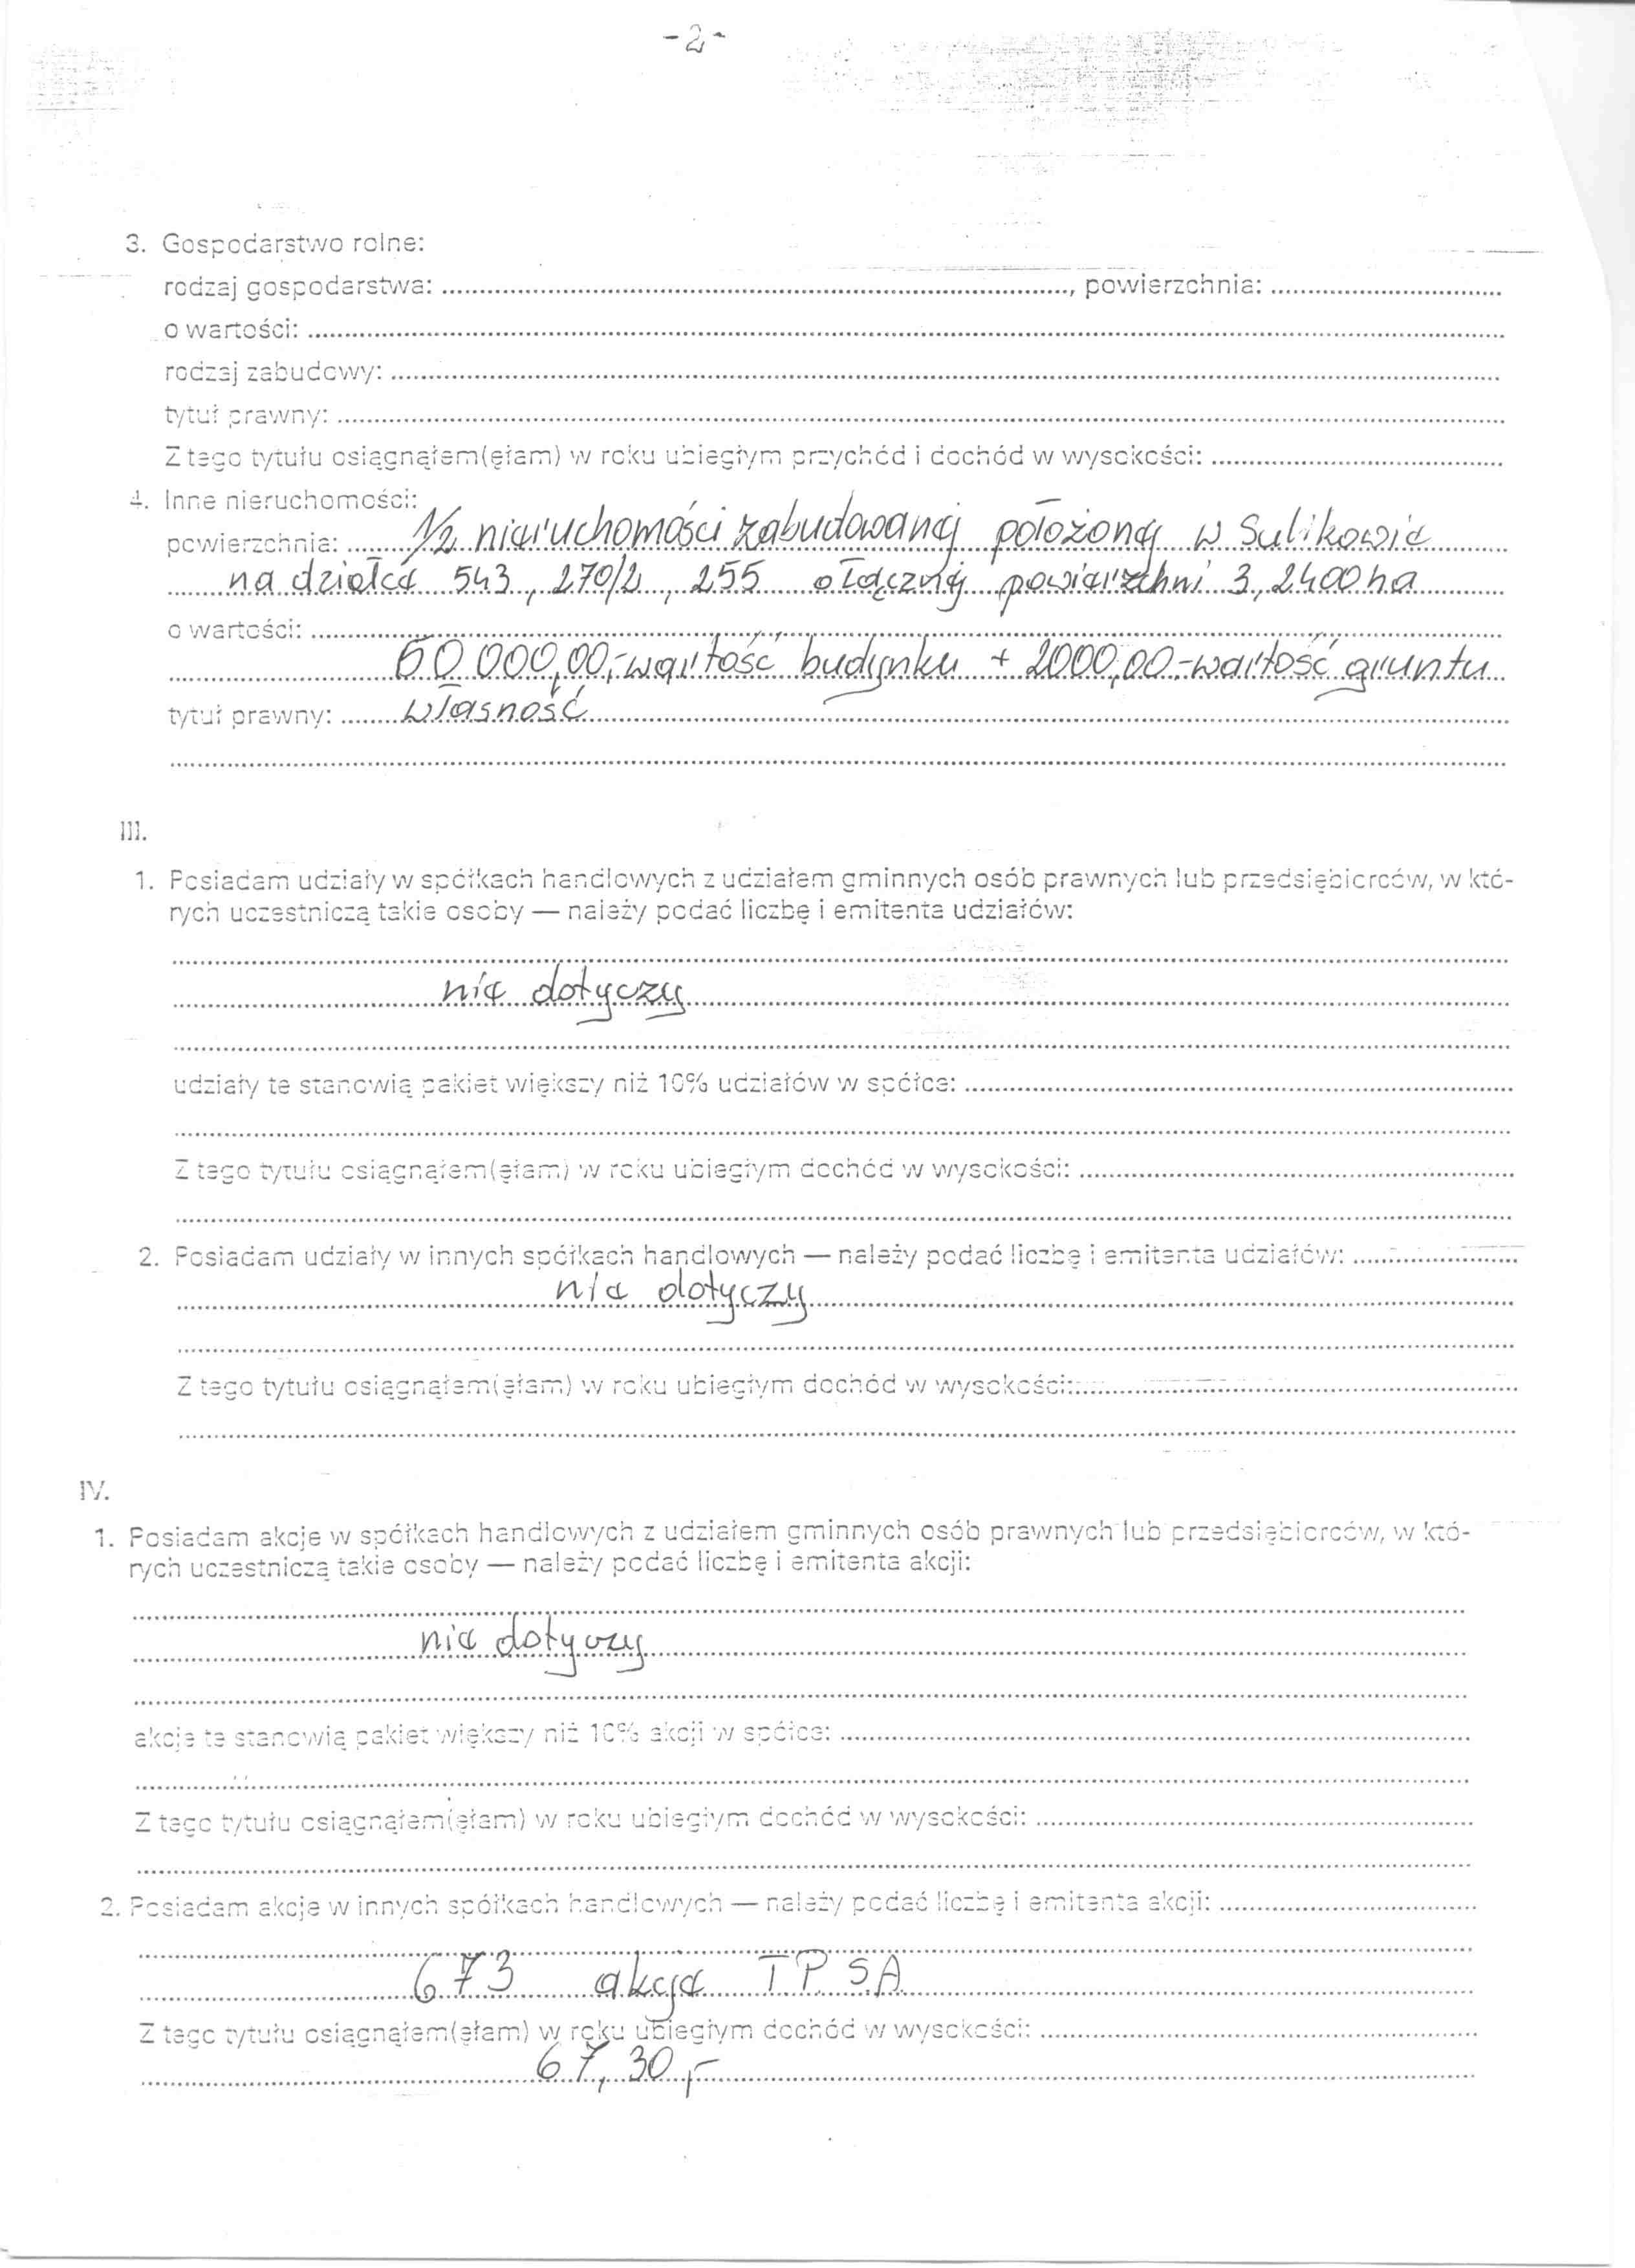 -2-
3. Gospodarstwo rolne:
rodzaj gospodarstwa: ..., powierzchnia: ...
o wartości: ...
rodzaj zabudowy: ...
tytuł prawny: ...
Z tego tytułu osiągnąłem(ęłam) w roku ubiegłym przychód i dochód w wysokości: ...
4. Inne nieruchomości:
powierzchnia: 1/2 nieruchomości zabudowanej położonej w Sulikowie
na działce 543, 270/2, 255 o łącznej powierzchni 3,2400 ha
o wartości: ...
60 000,00,- wartość budynku + 2000,00,- wartość gruntu
tytuł prawny: własność
III.
1. Posiadam udziały w spółkach handlowych z udziałem gminnych osób prawnych lub przedsiębiorców, w któ-
rych uczestniczą takie osoby — należy podać liczbę i emitenta udziałów:
nie dotyczy
udziały te stanowią pakiet większy niż 10% udziałów w spółce: ...
Z tego tytułu osiągnąłem(ęłam) w roku ubiegłym dochód w wysokości: ...
2. Posiadam udziały w innych spółkach handlowych — należy podać liczbę i emitenta udziałów: ...
nie dotyczy
Z tego tytułu osiągnąłem(ęłam) w roku ubiegłym dochód w wysokości: ...
IV.
1. Posiadam akcje w spółkach handlowych z udziałem gminnych osób prawnych lub przedsiębiorców, w któ-
rych uczestniczą takie osoby — należy podać liczbę i emitenta akcji:
nie dotyczy
akcje te stanowią pakiet większy niż 10% akcji w spółce: ...
Z tego tytułu osiągnąłem(ęłam) w roku ubiegłym dochód w wysokości: ...
2. Posiadam akcje w innych spółkach handlowych — należy podać liczbę i emitenta akcji: ...
673 akcje TP SA
Z tego tytułu osiągnąłem(ęłam) w roku ubiegłym dochód w wysokości: ...
67,30,-